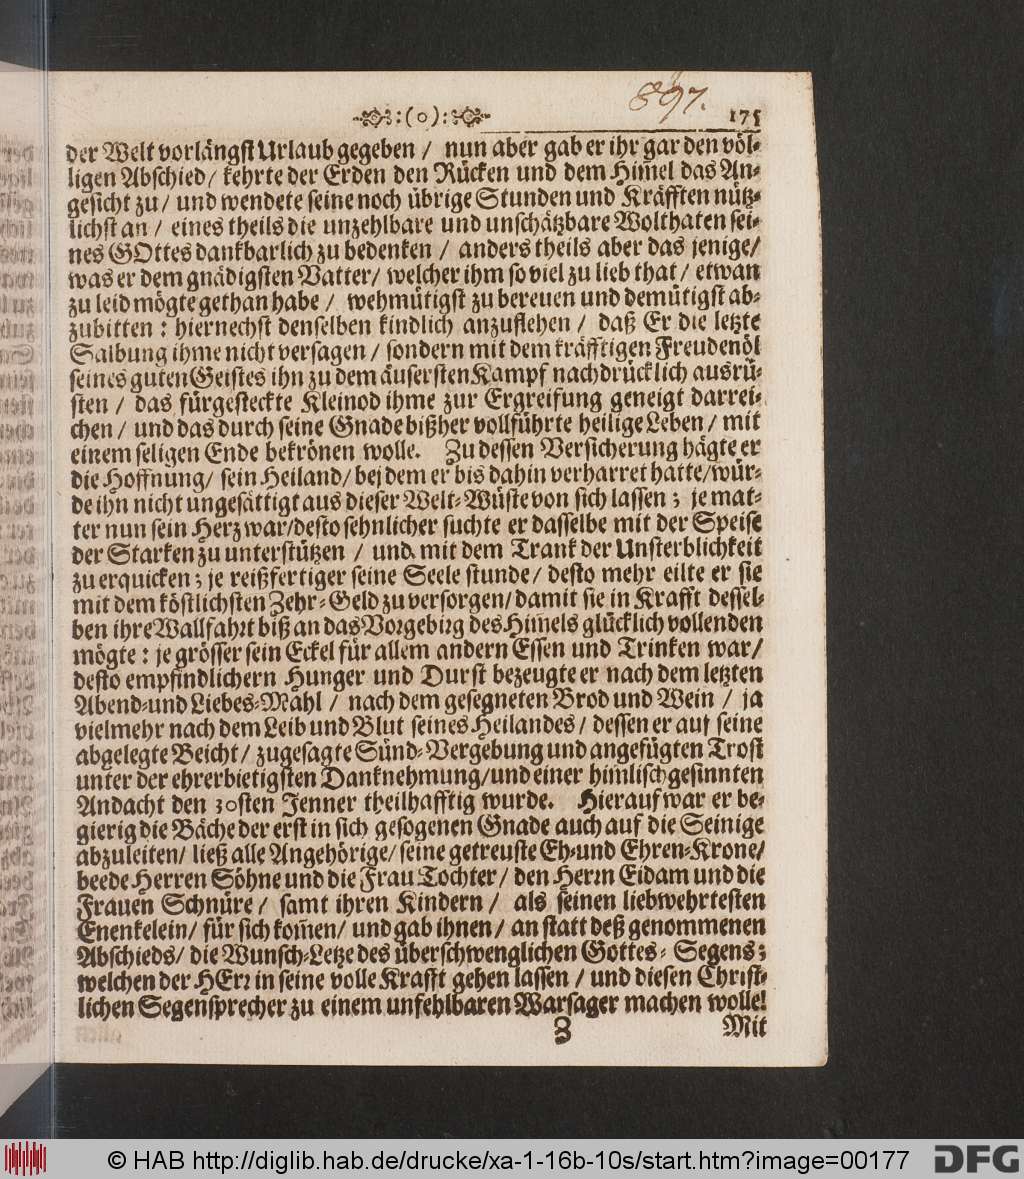 :(o):
897.
175
der Welt vorlängst Urlaub gegeben / nun aber gab er ihr gar den völ-
ligen Abschied / kehrte der Erden den Rücken und dem Him̃el das An-
gesicht zu / und wendete seine noch übrige Stunden und Kräfften nütz-
lichst an / eines theils die unzehlbare und unschätzbare Wolthaten sei-
nes GOttes dankbarlich zu bedenken / anders theils aber das jenige/
was er dem gnädigsten Vatter/ welcher ihm so viel zu lieb that / etwan
zu leid mögte gethan habe / wehmütigst zu bereuen und demütigst ab-
zubitten : hiernechst denselben kindlich anzuflehen / daß Er die letzte
Salbung ihme nicht versagen / sondern mit dem kräfftigen Freudenöl
seines guten Geistes ihn zu dem äusersten Kampf nachdrücklich ausrü-
sten / das fürgesteckte Kleinod ihme zur Ergreifung geneigt darrei-
chen / und das durch seine Gnade bißher vollführte heilige Leben / mit
einem seligen Ende bekrönen wolle. Zu dessen Versicherung hägte er
die Hoffnung/ sein Heiland/ bej dem er bis dahin verharret hatte/wür-
de ihn nicht ungesättigt aus dieser Welt-Wüste von sich lassen ; je mat-
ter nun sein Herz war/desto sehnlicher suchte er dasselbe mit der Speise
der Starken zu unterstützen / und mit dem Trank der Unsterblichkeit
zu erquicken ; je reißfertiger seine Seele stunde/ desto mehr eilte er sie
mit dem köstlichsten Zehr-Geld zu versorgen/ damit sie in Krafft dessel-
ben ihre Wallfahrt biß an das Vorgebirg des Him̃els glücklich vollenden
mögte : je grösser sein Eckel für allem andern Essen und Trinken war/
desto empfindlichern Hunger und Durst bezeugte er nach dem letzten
Abend-und Liebes-Mahl / nach dem gesegneten Brod und Wein / ja
vielmehr nach dem Leib und Blut seines Heilandes / dessen er auf seine
abgelegte Beicht/ zugesagte Sünd-Vergebung und angefügten Trost
unter der ehrerbietigsten Danknehmung/und einer himlisch gesinnten
Andacht den 30sten Jenner theilhafftig wurde. Hierauf war er be-
gierig die Bäche der erst in sich gesogenen Gnade auch auf die Seinige
abzuleiten/ ließ alle Angehörige/ seine getreuste Eh-und Ehren-Krone/
beede Herren Söhne und die Frau Tochter/ den Herrn Eidam und die
Frauen Schnüre / samt ihren Kindern / als seinen liebwehrtesten
Enenkelein/ für sich kom̃en/ und gab ihnen/ an statt deß genommenen
Abschieds/ die Wunsch-Letze des überschwenglichen Gottes- Segens;
welchen der HErr in seine volle Krafft gehen lassen / und diesen Christ-
lichen Segensprecher zu einem unfehlbaren Warsager machen wolle!
Z
Mit
© HAB http://diglib.hab.de/drucke/xa-1-16b-10s/start.htm?image=00177
DFG